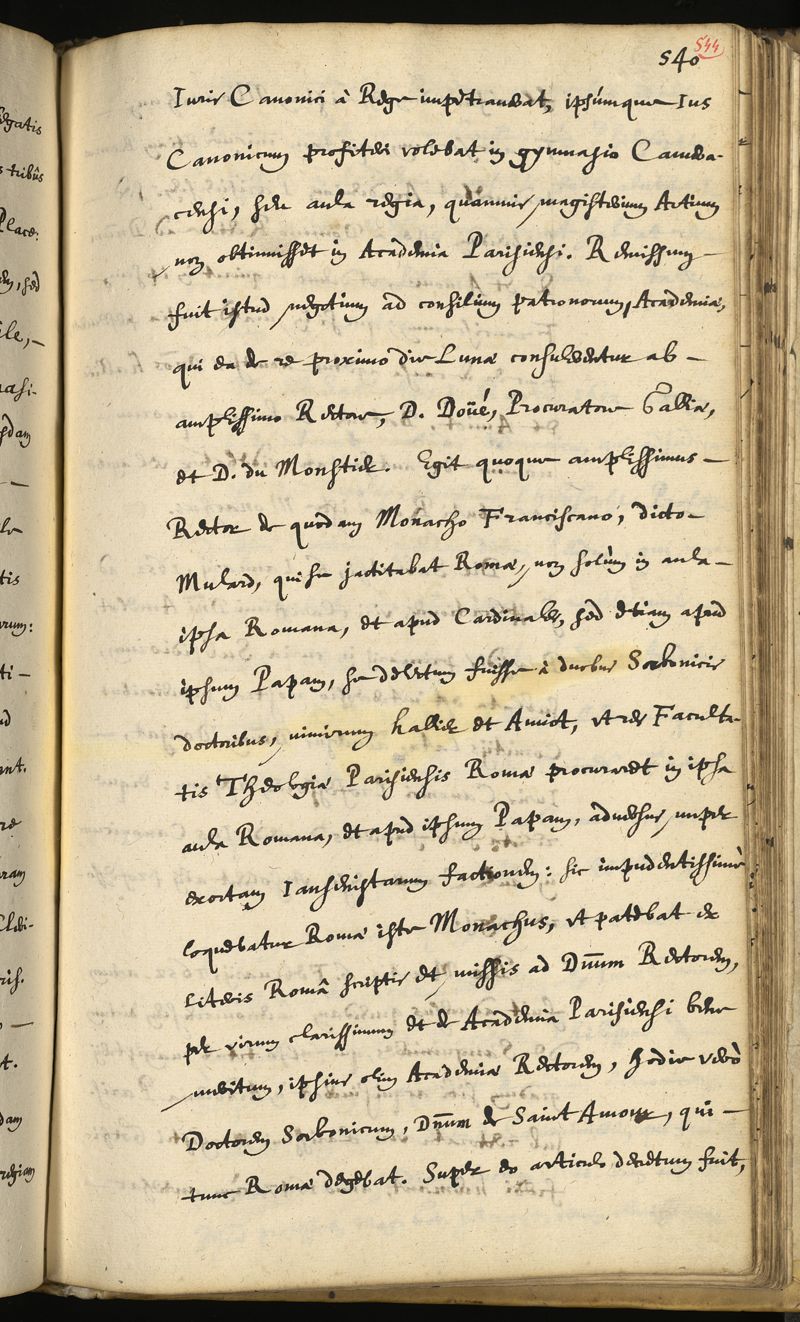 540 544
Iuris Canonici à Rege impetraverat, ipsúmque Ius
Canonicum profiteri volebat in gymnasio Camera-
censi, seu aula regia, quamvis magisterium Artium
non obtinuisset in Academia Parisiensi. Remissum
fuit istud negotium ad consilium patronorum Academiæ,
qui ea de re proximo die Lunæ consulerentur ab
amplissimo Rectore, D. Doüé, Procuratore Galliæ,
et D. du Monstier. Egit quoque amplissimus
Rector de quodam Monacho Franciscano, dicto
Mulard, qui se jactitabat Romæ, non solùm in aula
ipsa Romana, et apud Cardinales, sed etiam apud
ipsum Papam, se delectum fuisse à duobus Sorbonicis
doctoribus, nimirum hallier et Amiot, ut res Faculta-
tis Theologiæ Parisiensis Romæ procuraret in ipsa
aula Romana, et apud ipsum Papam, adversus nuper
exortam Iansenistarum factionem: sic impudentissimè
loquebatur Romæ iste Monachus, ut patebat ex
literis Româ scriptis et missis ad Dnum Rectorem,
per virum clarissimum et de Academia Parisiensi bene
meritum, ipsius olim Academiæ Rectorem, hodie verò
Doctorem Sorbonicum, Dnum de Saint Amour, qui
tunc Romæ degebat. Super eo articulo decretum fuit,